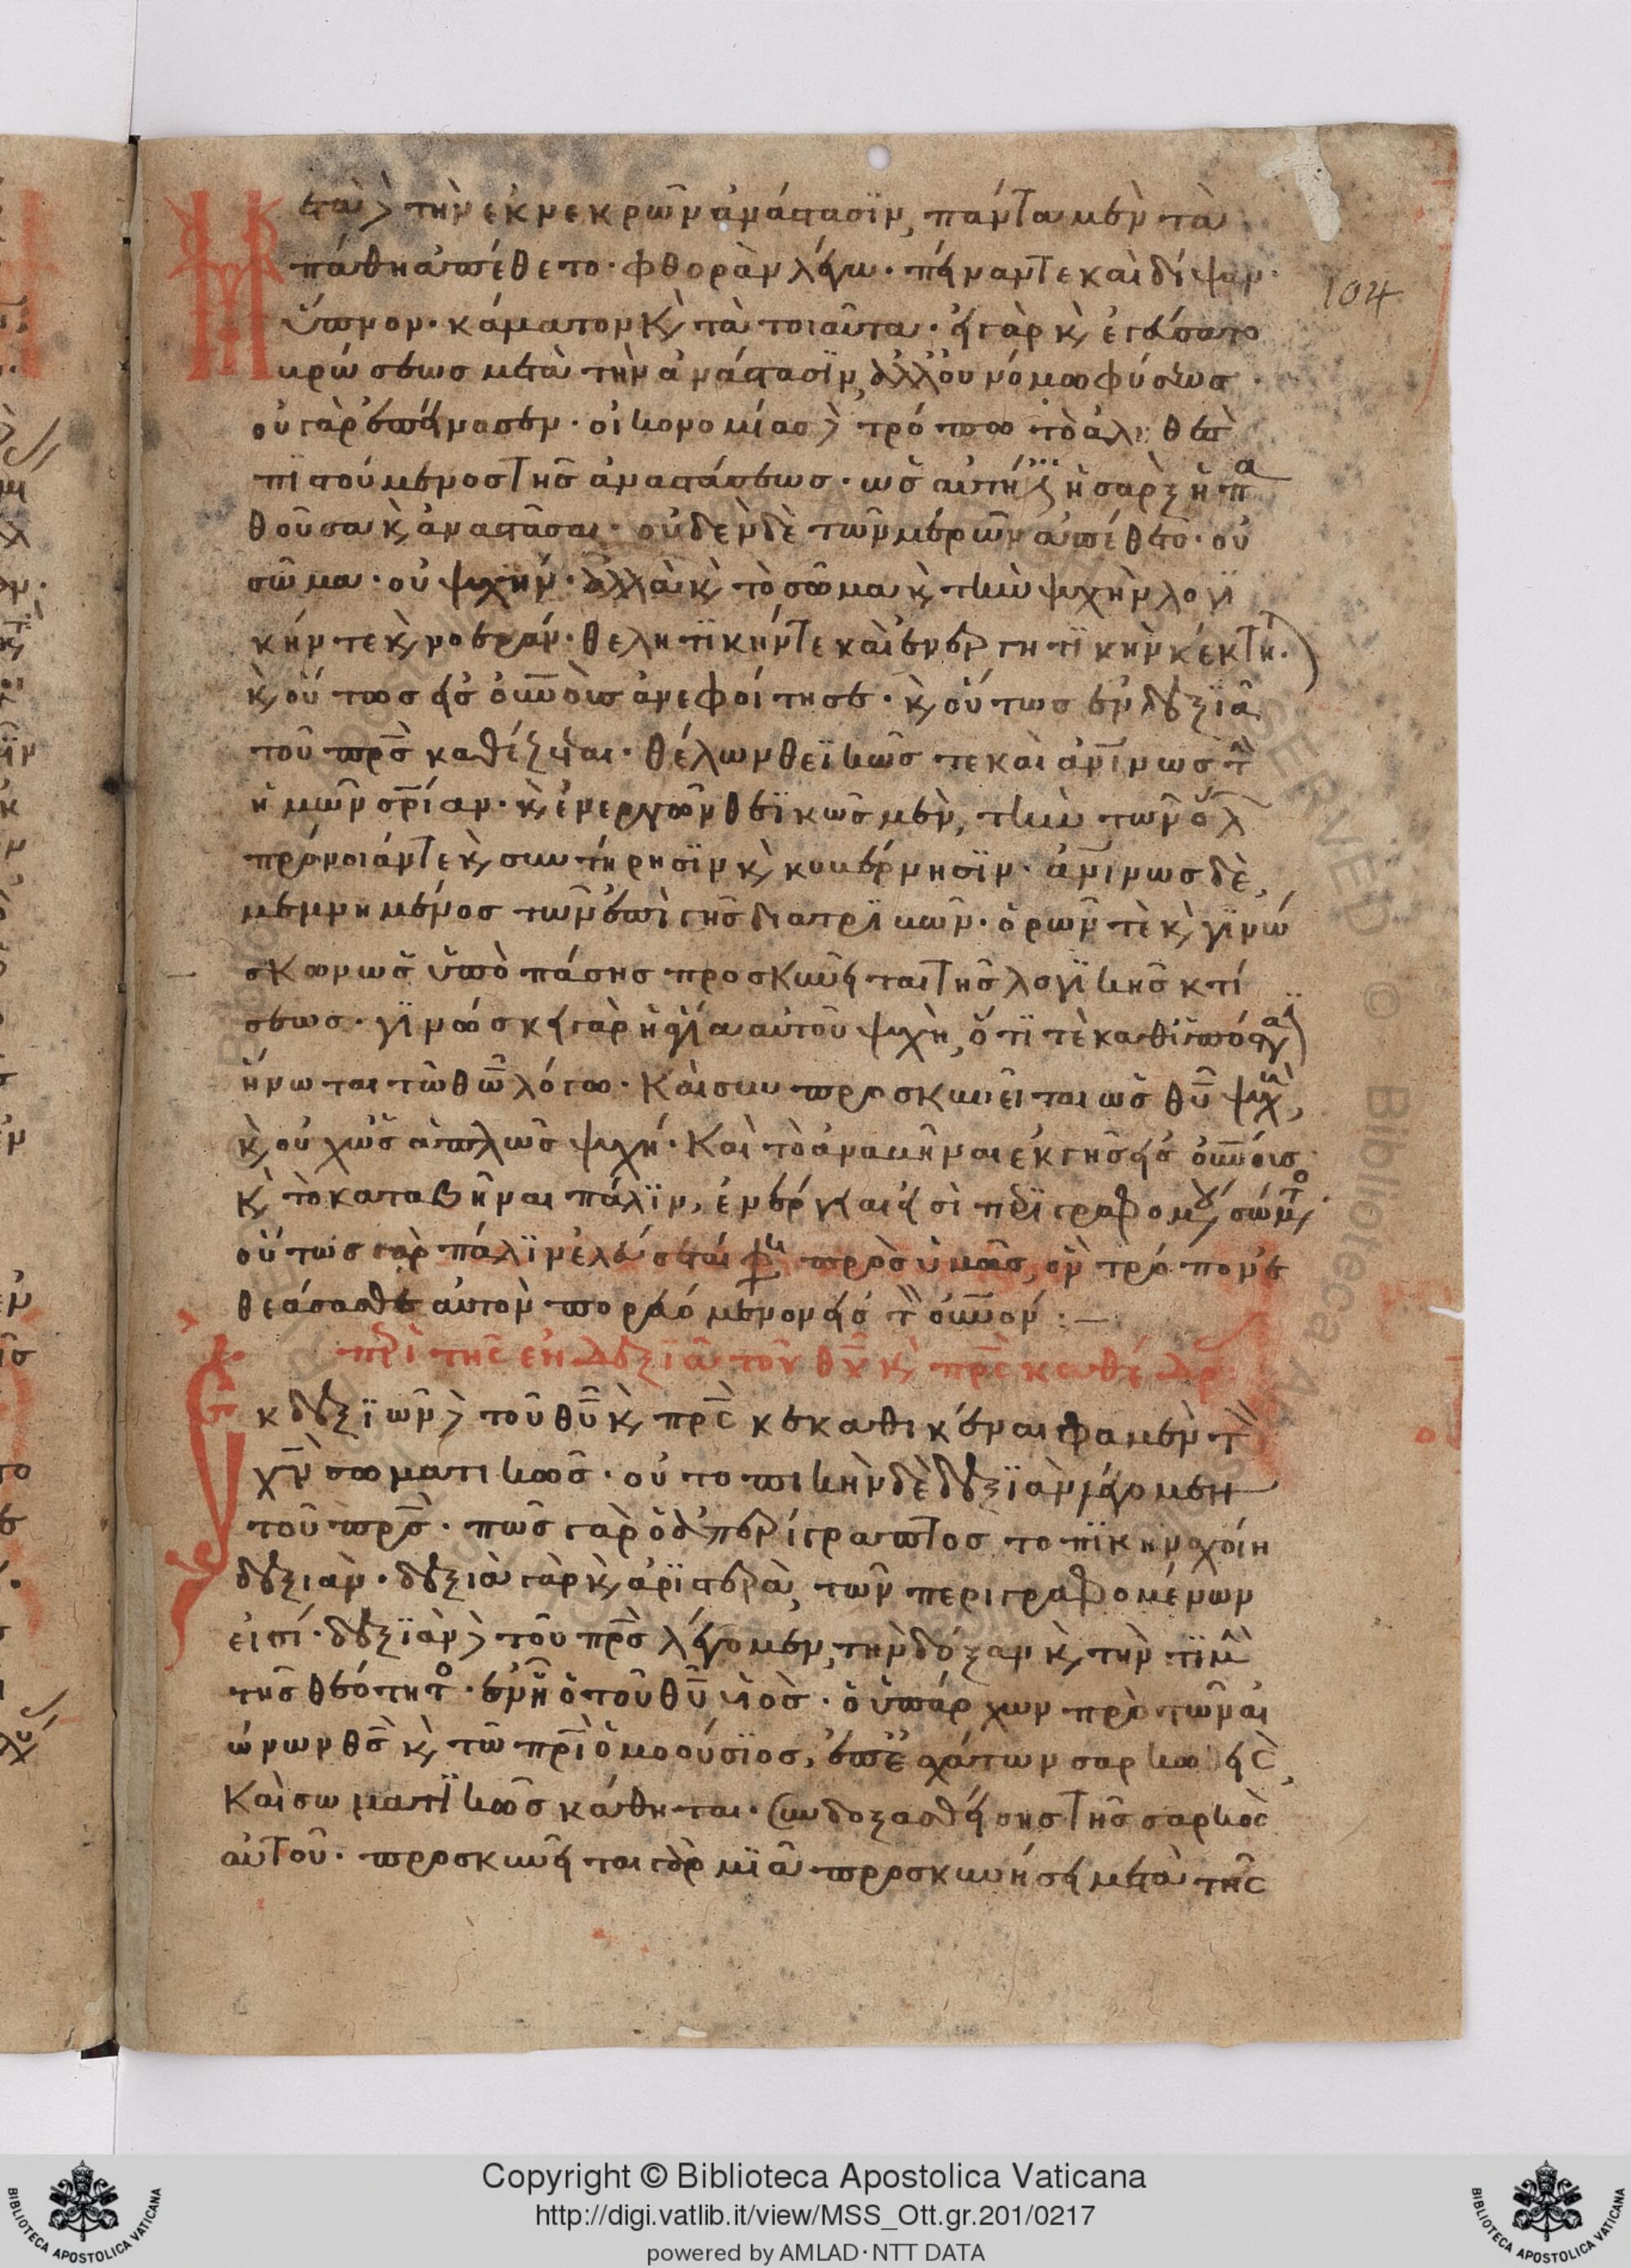 Μετὰ δὲ τὴν ἐκ νεκρῶν ἀνάστασϊν, πάντα μὲν τὰ
πάθη ἀπέθετο· φθορὰν λέγω· πείναν τε καὶ δίψαν·
ὕπνον· κάματον κ̀ τὰ τοιαῦτα· εἰ γὰρ κ̀ ἐγεύσατο
βρώσεως μετὰ τὴν ἀνάστασϊν, ἀλλ' οὐ νόμω φύσεως·
οὐ γὰρ ἐπείνασεν· οἰκονομίας δὲ τρόπω τὸ ἀληθὲς
πϊστούμενος τῆς ἀναστάσεως· ὡς αὐτή ἐστϊν ἡ σὰρξ ἡ πα
θοῦσα κ̀ ἀναστᾶσαι· οὐδὲν δὲ τῶν μερῶν ἀπέθετο· οὐ
σῶμα· οὐ ψυχήν· ἀλλὰ κ̀ τὸ σῶμα κ̀ τὴν ψυχὴν λογϊ
κήν τε κ̀ νοεράν· θελητϊκήν τε καὶ ἐνεργητϊκὴν κέκτητ
κ̀ οὕτως εἰς οὐνοὺς ἀνεφοίτησε· κ̀ οὕτως ἐν δεξϊᾶ
τοῦ πρς καθέζεται· θέλων θεϊκῶς τε καὶ ἀνίνως τ
ἡμῶν σρίαν· κ̀ ἐνεργῶν θεϊκῶς μὲν, τὴν τῶν ὅλ
πρόνοιάν τε κ̀ συντήρησϊν κ̀ κυβέρνησϊν· ἀνίνως δὲ,
μεμνημένος τῶν ἐπὶ γῆς διατρϊβῶν· ὁρῶν τὲ κ̀ γϊνώ
σκων ὡς ὑπὸ πάσης προσκυνεῖται τῆς λογϊκῆς κτί
σεως· γϊνώσκει γὰρ ἡ ἁγία αὐτοῦ ψυχὴ, ὅτϊ τὲ καθ' ὑπόστα
ἥνωται τῶ θῶ λόγω· Καὶ συνπροσκυνεῖται ὡς θῦ ψυχὴ,
κ̀ οὐχ ὡς ἁπλῶς ψυχή· Καὶ τὸ ἀναβῆναι ἐκ γῆς εἰς οὐνοὺς
κ̀ τὸ καταβῆναι πάλϊν, ἐνέργειαι εἰσὶ πϊγραφομ σώμτο
οὕτως γὰρ πάλϊν ἐλεύσεται φη πρὸς ὑμᾶς, ὃν τρόπον ἐ
θεάσασθε αὐτὸν πορευόμενον εἰς τ οὐνόν :—
πρὶ τῆς ἐν δεξϊᾶ τοῦ θῦ κ̀ πρς καθέδρ
Εκ δεξϊῶν δὲ τοῦ θῦ κ̀ πρς κεκαθικέναι φαμὲν τ
χν σωματικῶς· οὐ τοπικὴν δὲ δεξϊὰν λέγομεν
τοῦ πρς· πῶς γὰρ ὁ ἀπερίγραπτος τοπϊκὴν σχοίη
δεξιάν· δεξιὰ γὰρ κ̀ ἀρϊστερὰ, τῶν περιγραφομένων
εἰσί· δεξϊὰν δὲ τοῦ πρς λέγομεν, τὴν δόξαν κ̀ τὴν τϊμὴ
τῆς θεότητο· ἐν ἧ ὁ τοῦ θῦ υἱὸς· ὁ ὑπάρχων πρὸ τῶν αἰ
ώνων θς κ̀ τῶ πρὶ ὁμοούσϊος, ἐπ' ἐσχάτων σαρκωθεὶς,
Καὶ σωματϊκῶς κάθηται· συνδοξασθείσης τῆς σαρκὸς
αὐτοῦ· προσκυνεῖται γὰρ μϊᾶ προσκυνήσει μετὰ τῆς
104
Copyright © Biblioteca Apostolica Vaticana
http://digi.vatlib.it/view/MSS_Ott.gr.201/0217
powered by AMLAD·NTT DATA